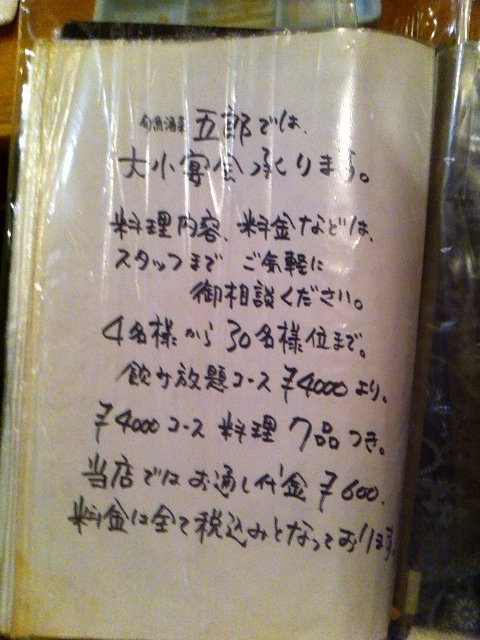 旬魚酒菜 五郎では、
大小宴会承ります。
料理内容、料金などは、
スタッフまで ご気軽に
御相談ください。
4名様から30名様位まで。
飲み放題コース ¥4000より。
¥4000コース 料理 7品つき。
当店ではお通し代金¥600.
料金は全て税込みとなっております。